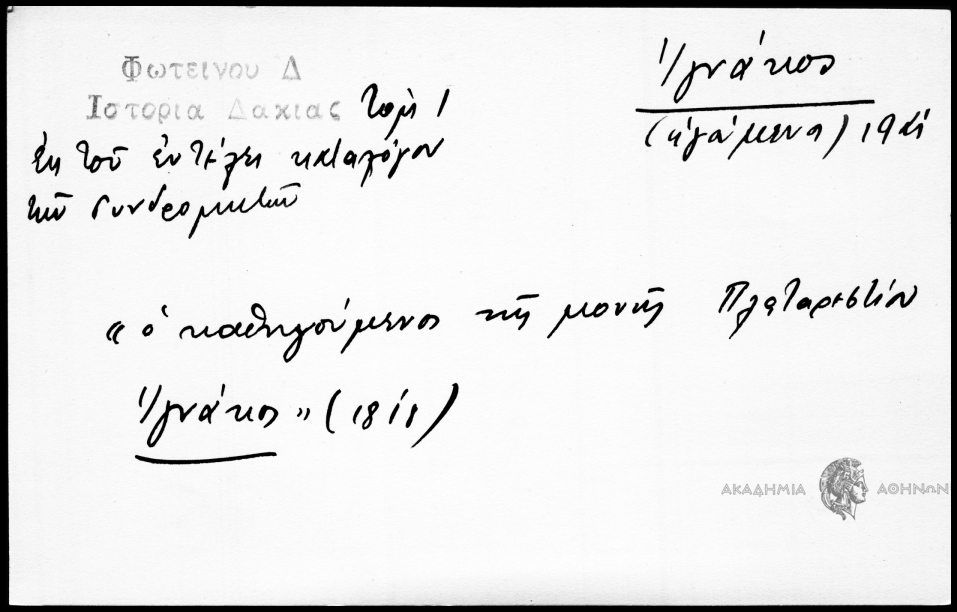 Φωτεινου Δ
Ιστορια Δακιας τομ 1
Ἐκ τοῦ ἐν τέλει καταλόγου
τῶν συνδρομητῶν
Ἰγνάτιος
(ἡγούμενος)
« ὁ καθηγούμενος τῆς μονῆς
Ἰγνάτιος » (1818)
ΑΚΑΔΗΜΙΑ ΑΘΗΝΩΝ